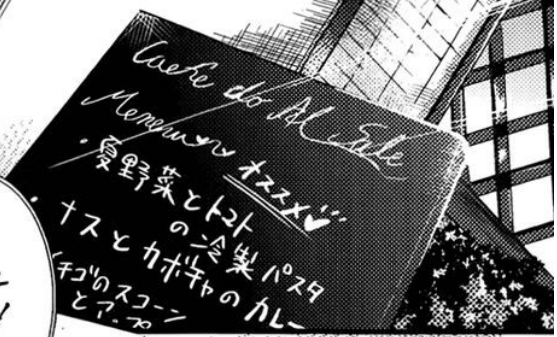 Cafe do Al Sale
Menu
オススメ♡
・夏野菜とトマト
の冷製パスタ
・ナスとカボチャのカレー
チゴのスコーン